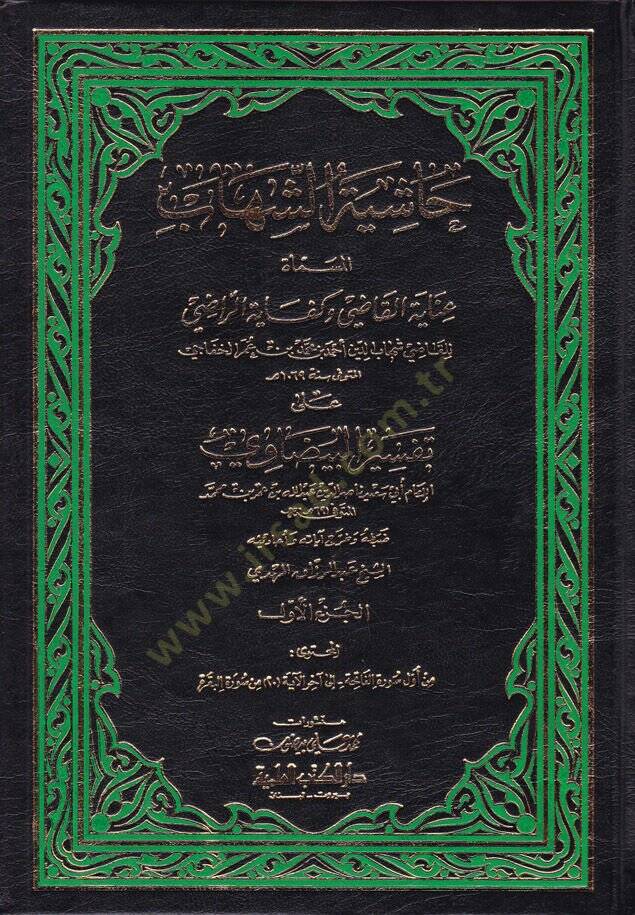 حاشية الشهاب
المسماة
عناية القاضي وكفاية الراضي
للقاضي شهاب الدين أحمد بن محمد بن عمر الخفاجي
المتوفى سنة ١٠٦٩ هـ
على
تفسير البيضاوي
الإمام أبي سعيد ناصر الدين عبد الله بن عمر بن محمد
المتوفى سنة
ضبطه وخرج آياته وأحاديثه
الشيخ عبد الرزاق المهدي
الجزء الأول
المحتوى:
من أول سورة الفاتحة - إلى آخر الآية (٢٠) من سورة البقرة
منشورات
محمد علي بيضون
دار الكتب العلمية
بيروت - لبنان
www.irsad.com.tr